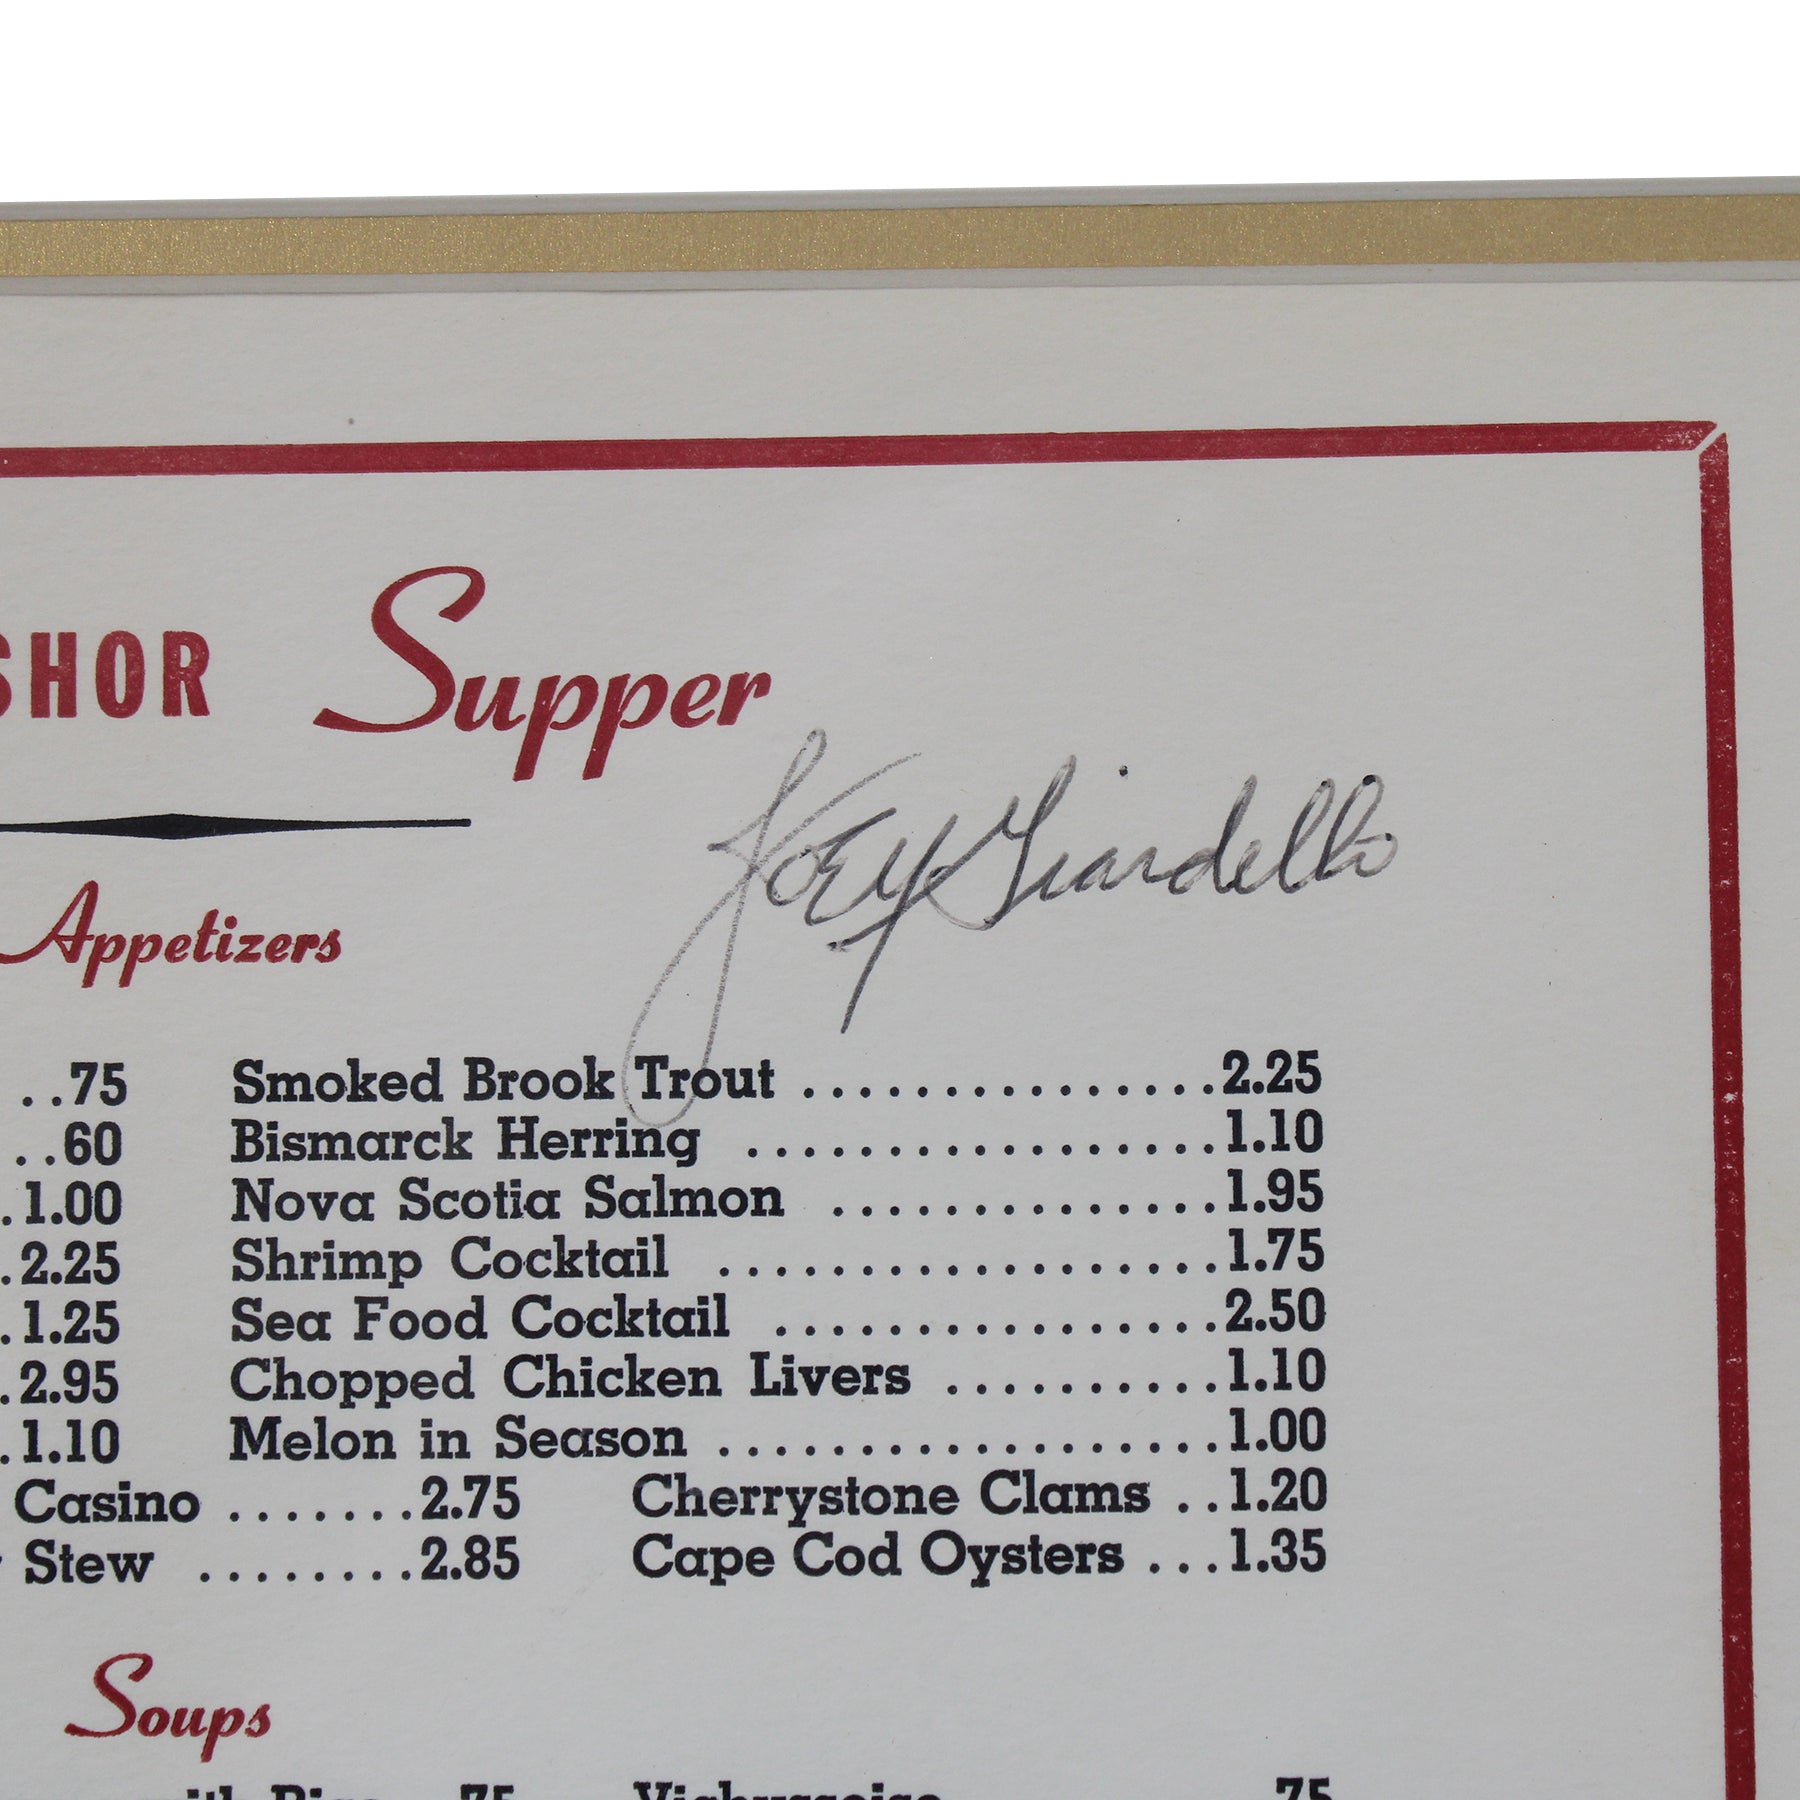 SHOR Supper
Joey Giardello
Appetizers
..75 Smoked Brook Trout ...............2.25
..60 Bismarck Herring .................1.10
.1.00 Nova Scotia Salmon ..............1.95
.2.25 Shrimp Cocktail ..................1.75
.1.25 Sea Food Cocktail ................2.50
.2.95 Chopped Chicken Livers ..........1.10
.1.10 Melon in Season ..................1.00
Casino .......2.75 Cherrystone Clams ..1.20
Stew ........2.85 Cape Cod Oysters ...1.35
Soups
75 75